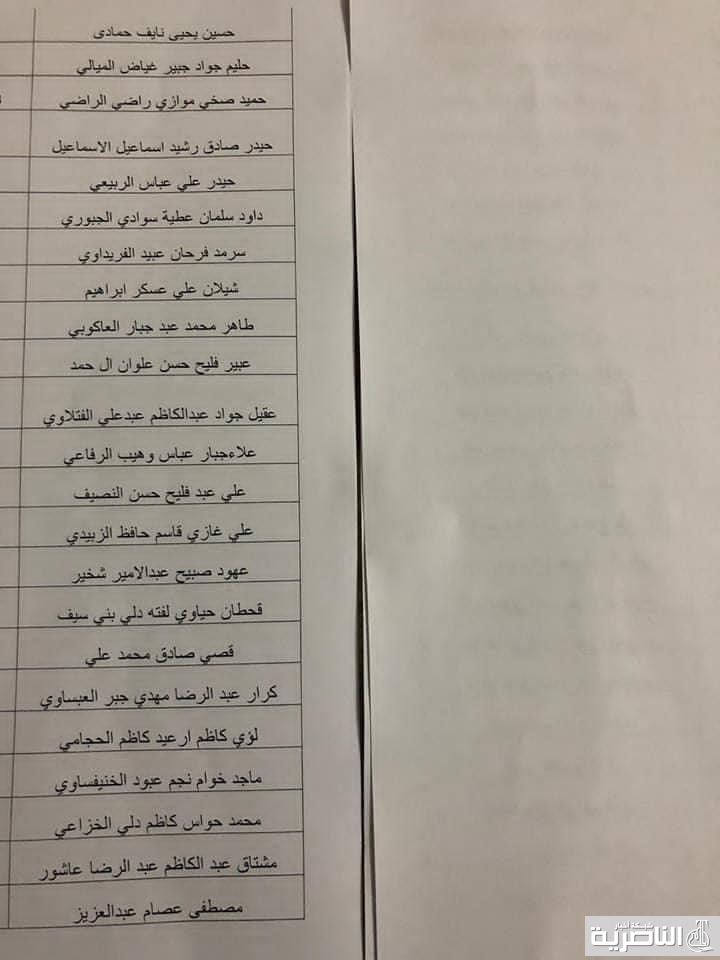 حسين يحيى نايف حمادى
حليم جواد جبير غياض الميالي
حميد صخي موازي راضي الراضي
حيدر صادق رشيد اسماعيل الاسماعيل
حيدر علي عباس الربيعي
داود سلمان عطية سوادي الجبوري
سرمد فرحان عبيد الفريداوي
شيلان علي عسكر ابراهيم
طاهر محمد عبد جبار العاكوبي
عبير فليح حسن علوان ال حمد
عقيل جواد عبدالكاظم عبدعلي الفتلاوي
علاءجبار عباس وهيب الرفاعي
علي عبد فليح حسن النصيف
علي غازي قاسم حافظ الزبيدي
عهود صبيح عبدالامير شخير
قحطان حياوي لفته دلي بني سيف
قصي صادق محمد علي
كرار عبد الرضا مهدي جبر العبساوي
لؤي كاظم ارعيد كاظم الحجامي
ماجد خوام نجم عبود الخنيفساوي
محمد حواس كاظم دلي الخزاعي
مشتاق عبد الكاظم عبد الرضا عاشور
مصطفى عصام عبدالعزيز
شبكة اخبار
الناصرية